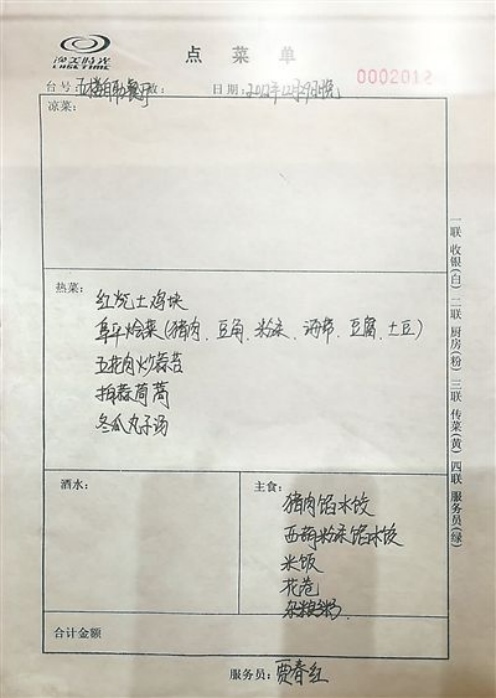 渔美时光
LUSETIME
点菜单
0002012
台号:五楼自助餐厅 数: 日期:2012年12月29日晚
凉菜:
热菜:
红烧土鸡块
阜平烩菜(猪肉、豆角、粉条、海带、豆腐、土豆)
五花肉炒蒜苔
拍蒜茼蒿
冬瓜丸子汤
酒水:
主食:
猪肉馅水饺
西葫粉条馅水饺
米饭
花卷
杂粮粥
合计金额
服务员:贾春红
一联 收银(白) 二联 厨房(粉) 三联 传菜(黄) 四联 服务员(绿)